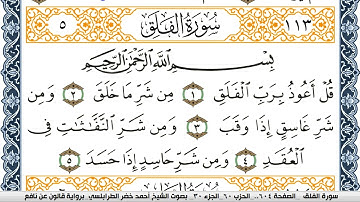 ٥ سُورَةُ الْفَلَقِ ١١٣
بِسْمِ اللَّهِ الرَّحْمَٰنِ الرَّحِيمِ
قُلْ أَعُوذُ بِرَبِّ الْفَلَقِ ١ مِن شَرِّ مَا خَلَقَ ٢ وَمِن
شَرِّ غَاسِقٍ إِذَا وَقَبَ ٣ وَمِن شَرِّ النَّفَّٰثَٰتِ فِى
الْعُقَدِ ٤ وَمِن شَرِّ حَاسِدٍ إِذَا حَسَدَ ٥
سورة الفلق .. الصفحة ٦٠٤ .. الحزب ٦٠ .. الجزء ٣٠ .. بصوت الشيخ أحمد خضر الطرابلسي .. برواية قالون عن نافع